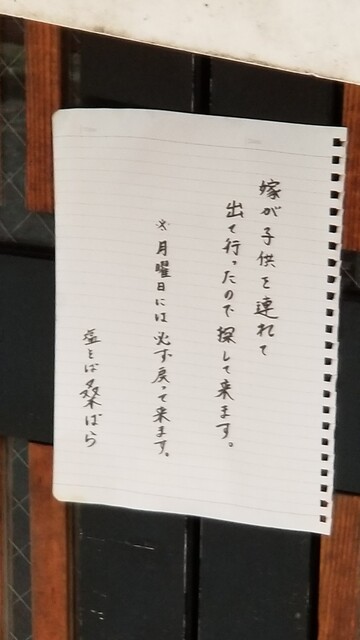 嫁が子供を連れて
出て行ったので探して来ます。
※月曜日には必ず戻って来ます。
塩そば桑ばら